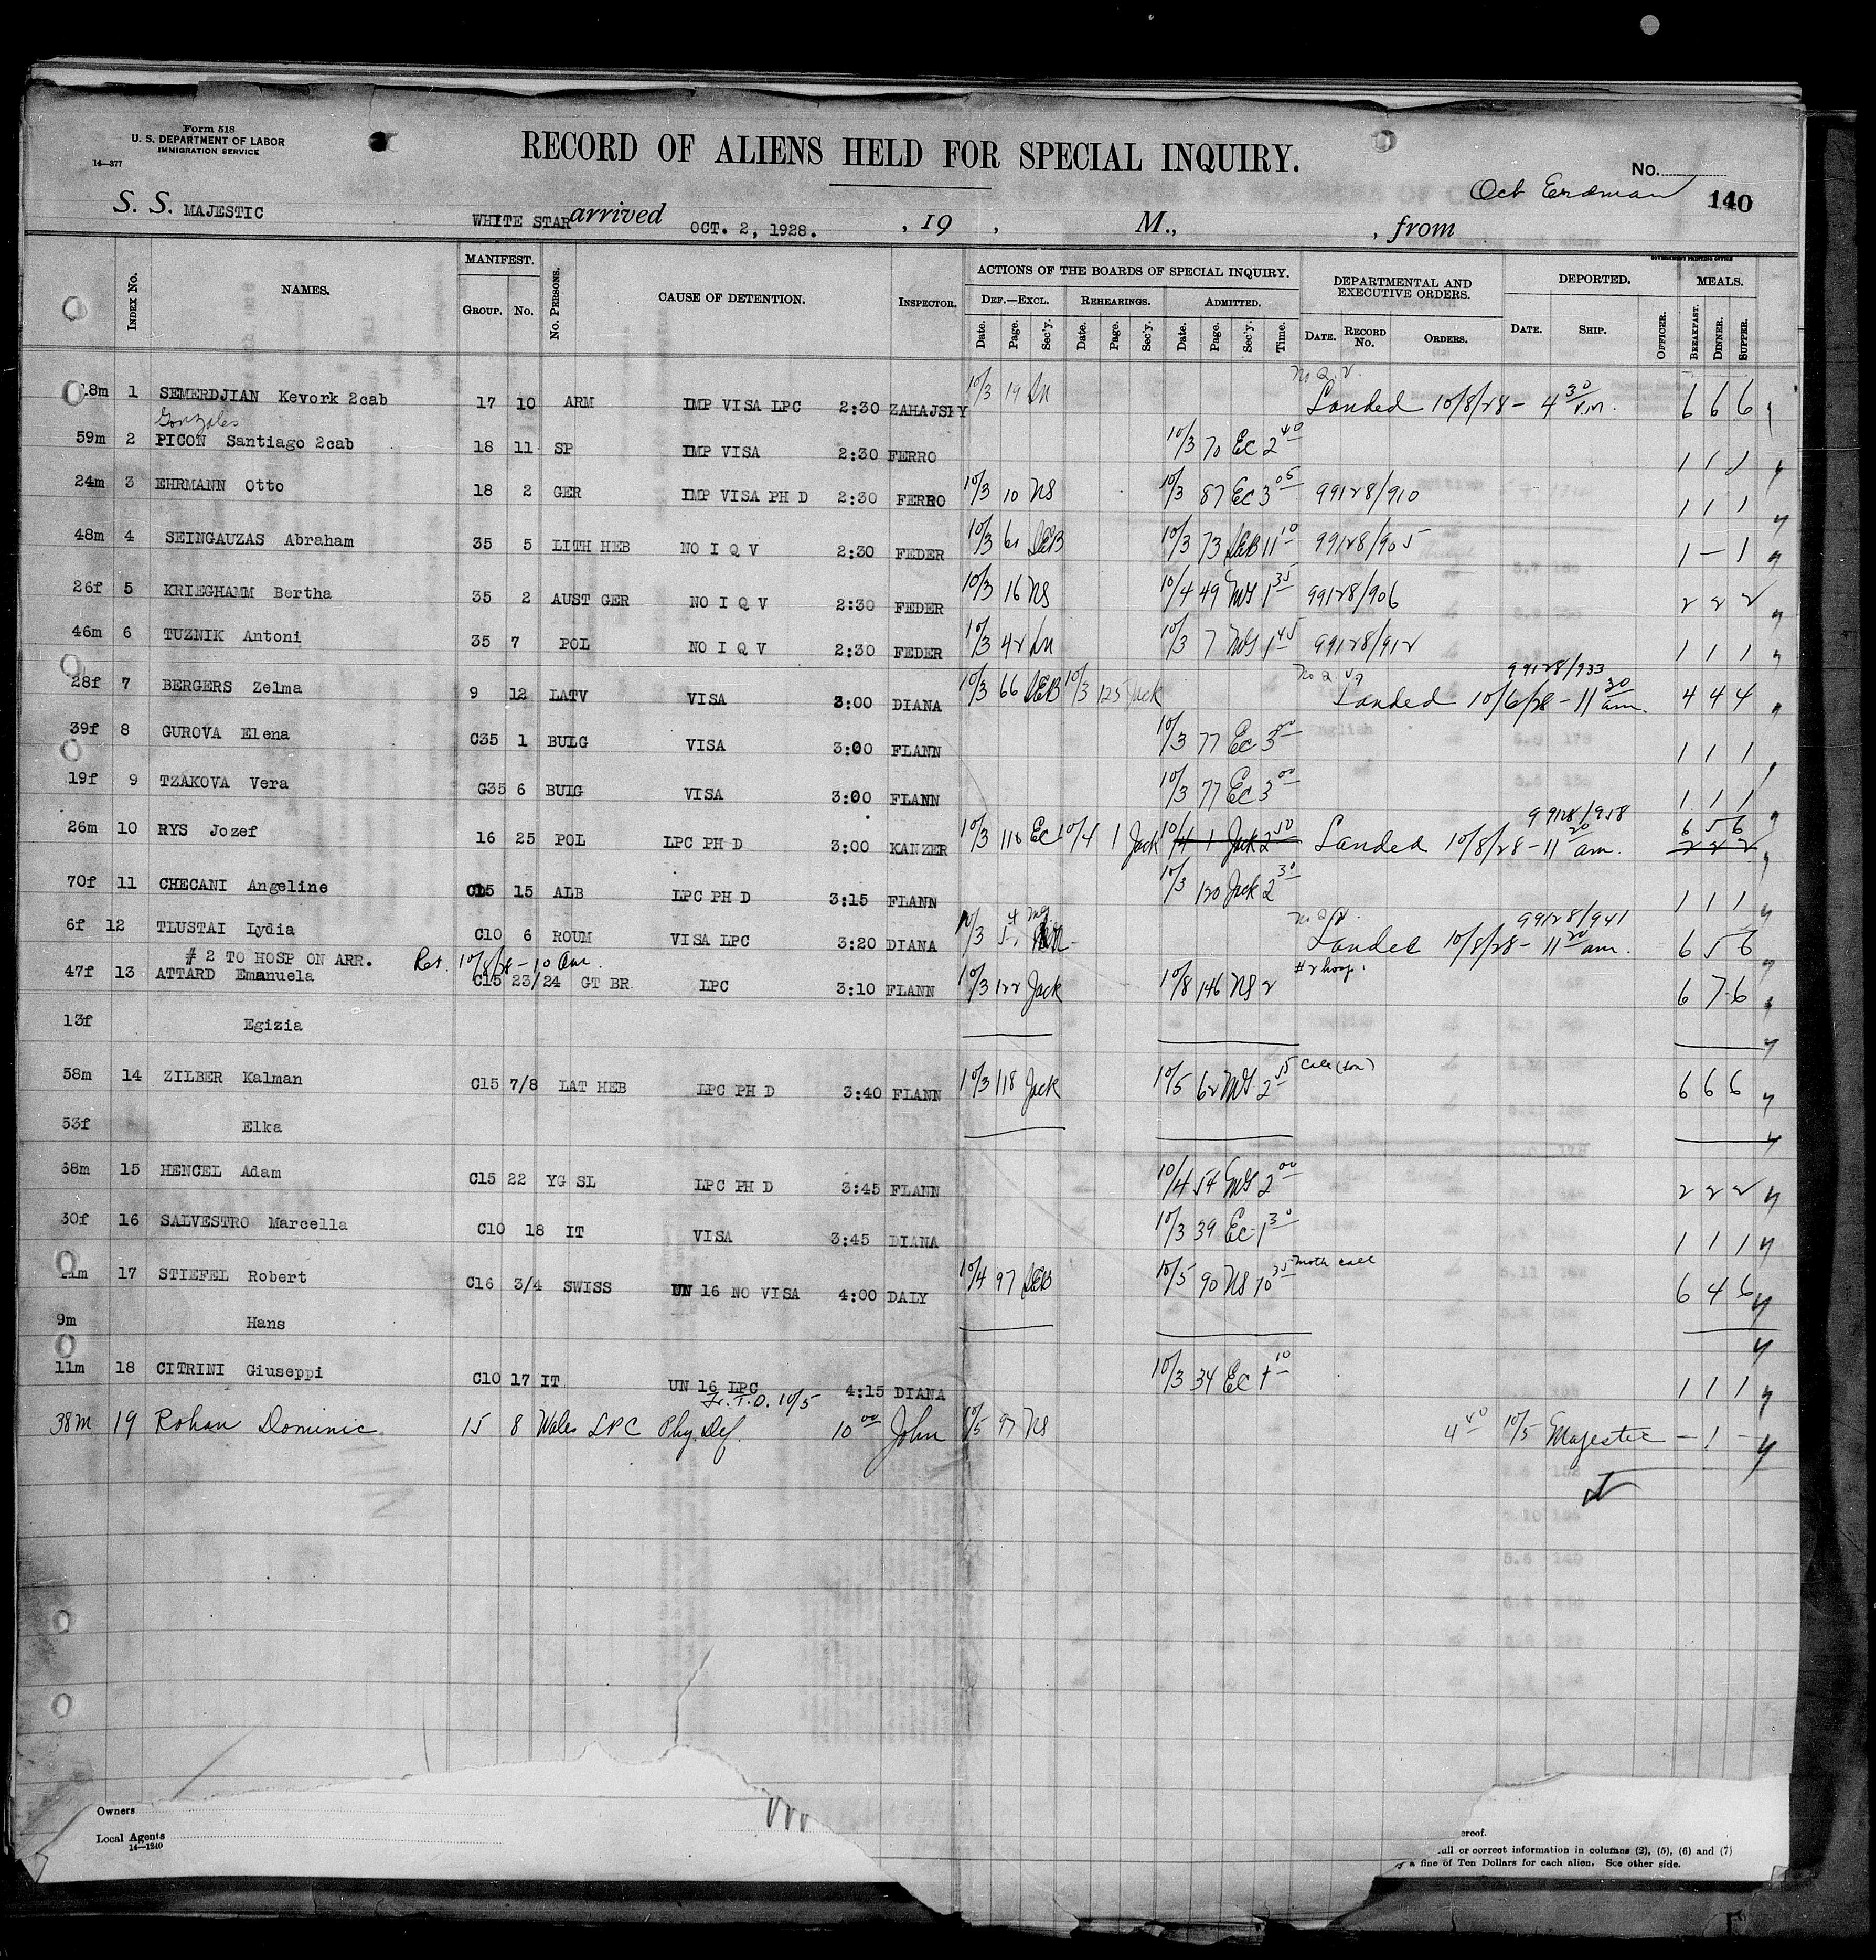 Form 518
U. S. DEPARTMENT OF LABOR
IMMIGRATION SERVICE
14—377
RECORD OF ALIENS HELD FOR SPECIAL INQUIRY.
No.
Oct Erdman 140
S. S. MAJESTIC WHITE STAR arrived OCT. 2, 1928. , 19 , M., , from
GOVERNMENT PRINTING OFFICE
Index No. NAMES. MANIFEST. Group. No. No. Persons. CAUSE OF DETENTION. Inspector. ACTIONS OF THE BOARDS OF SPECIAL INQUIRY. DEPARTMENTAL AND EXECUTIVE ORDERS. DEPORTED. Officer. MEALS.
Def.—Excl. Rehearings. Admitted.
Date. Page. Sec'y. Date. Page. Sec'y. Date. Page. Sec'y. Time. Date. Record No. Orders. Date. Ship. Breakfast. Dinner. Supper.
18m 1 SEMERDJIAN Kevork 2cab 17 10 ARM IMP VISA LPC 2:30 ZAHAJSKY 10/3 19 Landed 10/8/28 - 4 30 P.M. 6 6 6
Gonzales
59m 2 PICON Santiago 2cab 18 11 SP IMP VISA 2:30 FERRO 10/3 70 Ec 2 40 1 1 1
24m 3 EHRMANN Otto 18 2 GER IMP VISA PH D 2:30 FERRO 10/3 10 NS 10/3 87 Ec 3 05 99128/910 1 1 1
48m 4 SEINGAUZAS Abraham 35 5 LITH HEB NO I Q V 2:30 FEDER 10/3 61 DEB 10/3 73 DEB 11 10 99128/905 1 — 1
26f 5 KRIEGHAMM Bertha 35 2 AUST GER NO I Q V 2:30 FEDER 10/3 16 NS 10/4 49 MG 1 35 99128/906 2 2 2
46m 6 TUZNIK Antoni 35 7 POL NO I Q V 2:30 FEDER 10/3 42 10/3 7 MG 1 45 99128/912 1 1 1
99128/933
28f 7 BERGERS Zelma 9 12 LATV VISA 3:00 DIANA 10/3 66 DEB 10/3 125 Jack Landed 10/6/28 - 11 30 am. 4 4 4
39f 8 GUROVA Elena C35 1 BULG VISA 3:00 FLANN 10/3 77 Ec 3 00 1 1 1
19f 9 TZAKOVA Vera C35 6 BULG VISA 3:00 FLANN 10/3 77 Ec 3 00 1 1 1
99128/958
26m 10 RYS Jozef 16 25 POL LPC PH D 3:00 KANZER 10/3 116 Ec 10/4 1 Jack 10/4 1 Jack 2 50 Landed 10/8/28 - 11 20 am. 6 5 6
2 2 2
70f 11 CHECANI Angeline C15 15 ALB LPC PH D 3:15 FLANN 10/3 120 Jack 2 30 1 1 1
99128/941
6f 12 TLUSTAI Lydia C10 6 ROUM VISA LPC 3:20 DIANA 10/3 Landed 10/8/28 - 11 20 am. 6 5 6
# 2 TO HOSP ON ARR. Ret. 10/8/28 - 10 am. #2 hosp.
47f 13 ATTARD Emanuela C15 23/24 GT BR LPC 3:10 FLANN 10/3 122 Jack 10/8 146 NS 2 6 7 6
13f Egizia
58m 14 ZILBER Kalman C15 7/8 LAT HEB LPC PH D 3:40 FLANN 10/3 118 Jack 10/5 62 MG 2 55 Call (son) 6 6 6
53f Elka
68m 15 HENCEL Adam C15 22 YG SL LPC PH D 3:45 FLANN 10/4 54 MG 2 00 2 2 2
30f 16 SALVESTRO Marcella C10 18 IT VISA 3:45 DIANA 10/3 39 Ec 1 30 1 1 1
11m 17 STIEFEL Robert C16 3/4 SWISS UN 16 NO VISA 4:00 DALY 10/4 97 DEB 10/5 90 NS 10 35 Moth call 6 4 6
9m Hans
11m 18 CITRINI Giuseppi C10 17 IT UN 16 LPC 4:15 DIANA 10/3 34 Ec 1 10 1 1 1
Fr. T.D. 10/5
38m 19 Rohan Dominic 15 8 Wales LPC Phy. Def. 10 00 John 10/5 97 NS 4 40 10/5 Majestic — 1 —
Owners
Local Agents
14—1240
ereof.
ull or correct information in columns (2), (5), (6) and (7)
a fine of Ten Dollars for each alien. See other side.